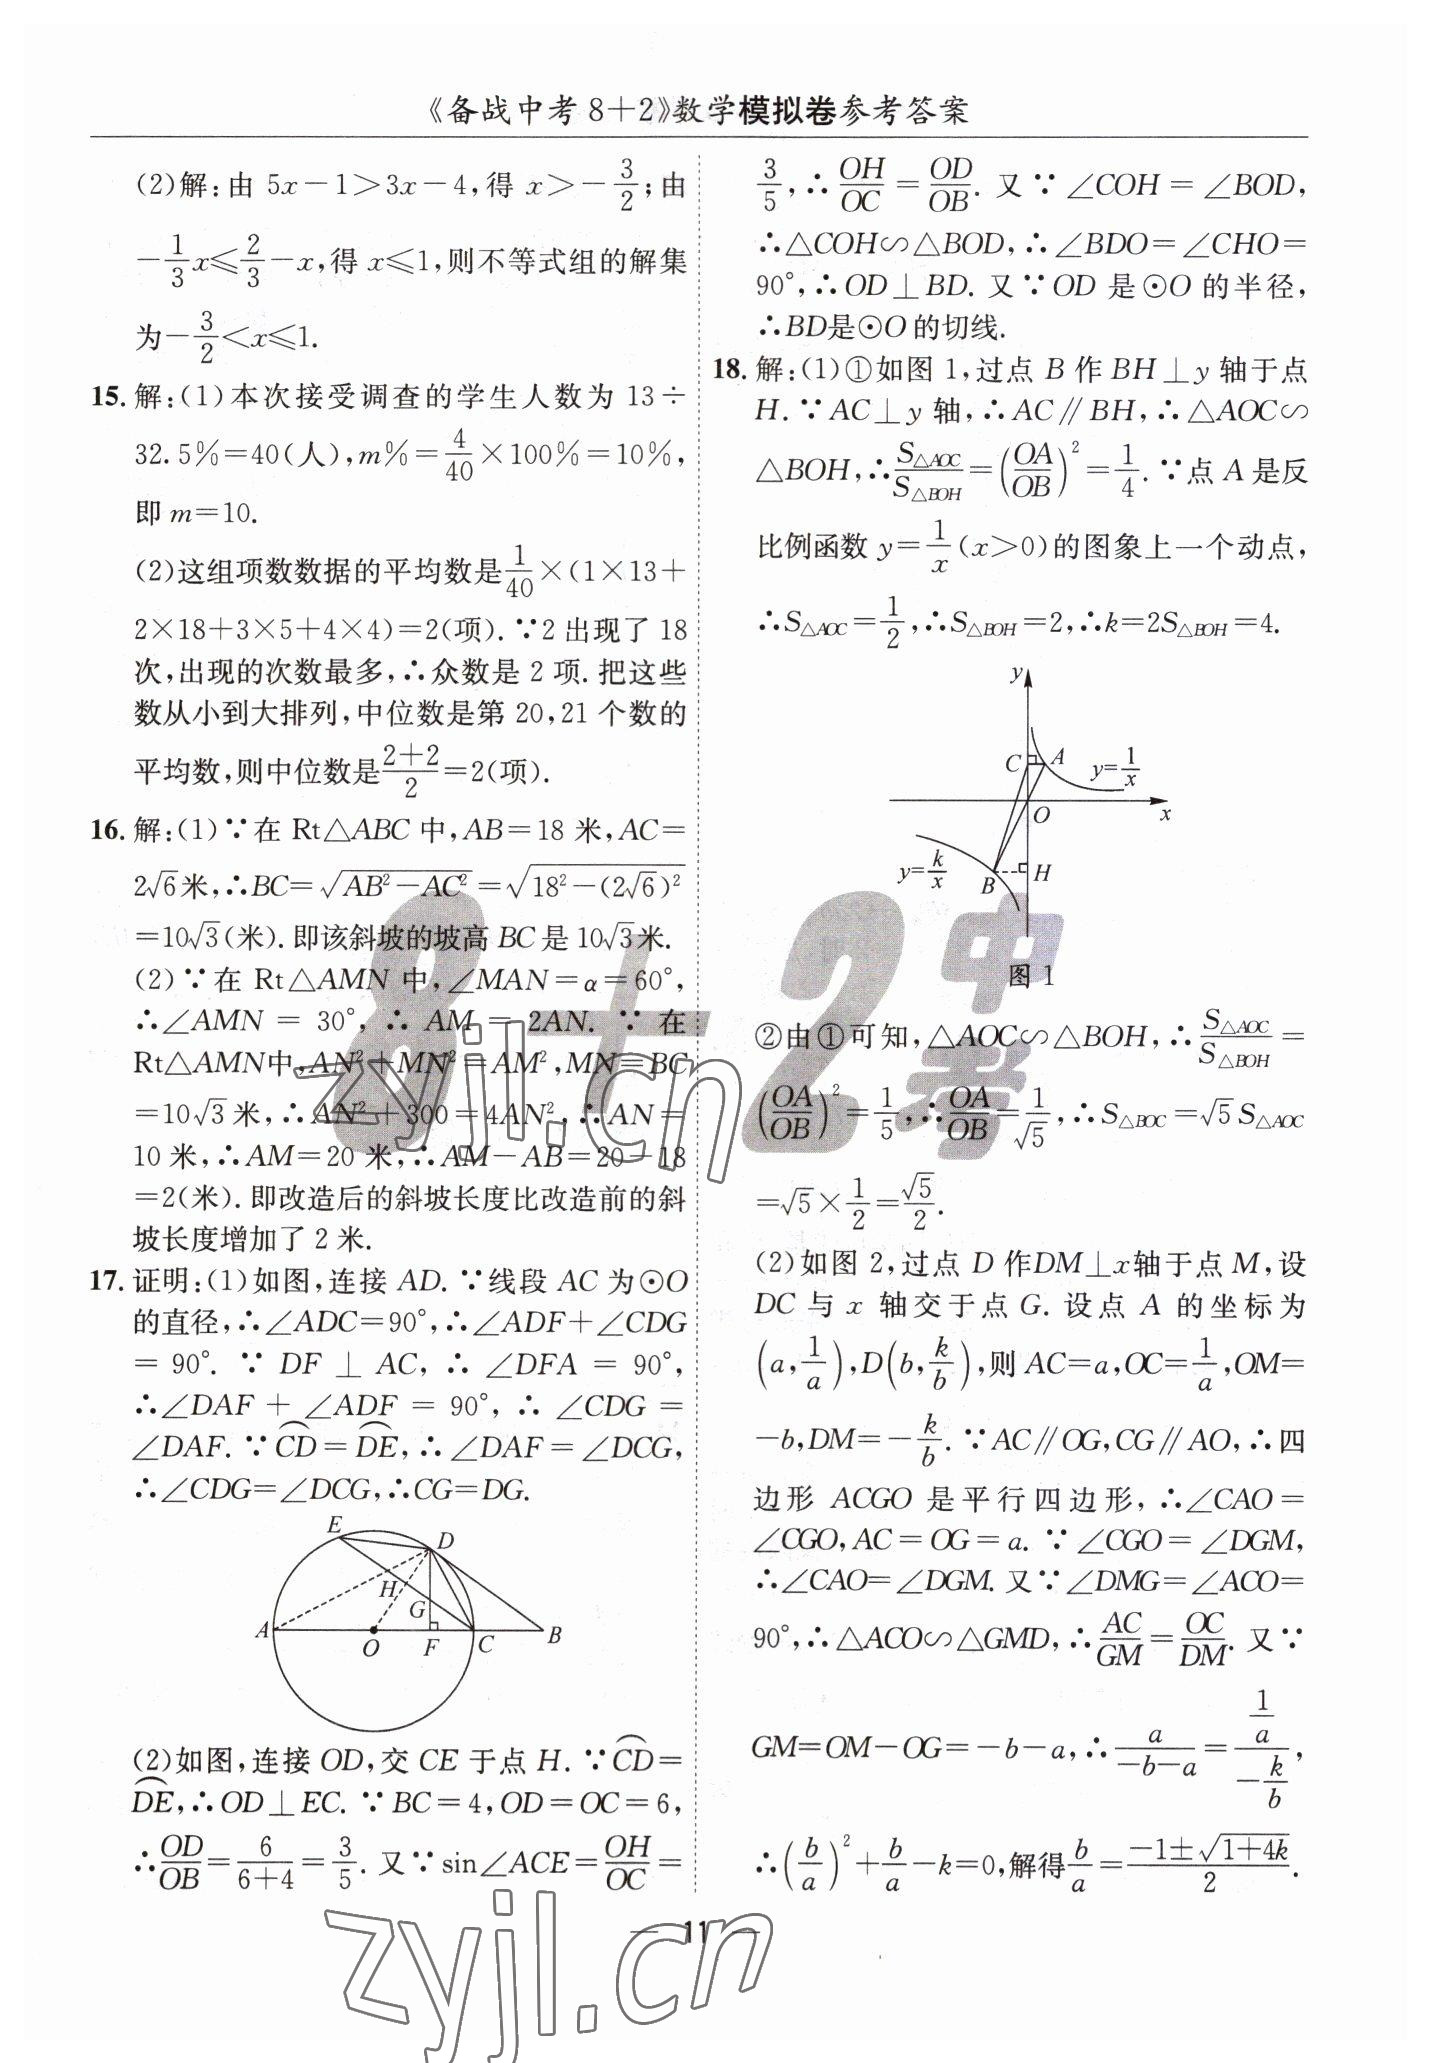 《备战中考8+2》数学模拟卷参考答案
(2)解:由 5x-1>3x-4,得 x>-3/2;由
-1/3x≤2/3-x,得 x≤1,则不等式组的解集
为-3/2<x≤1.
15. 解:(1)本次接受调查的学生人数为 13÷
32.5%=40(人),m%=4/40×100%=10%,
即 m=10.
(2)这组项数数据的平均数是1/40×(1×13+
2×18+3×5+4×4)=2(项).∵2 出现了 18
次,出现的次数最多,∴众数是 2 项.把这些
数从小到大排列,中位数是第 20,21 个数的
平均数,则中位数是(2+2)/2=2(项).
16. 解:(1)∵在 Rt△ABC 中,AB=18 米,AC=
2√6米,∴BC=√(AB²-AC²)=√(18²-(2√6)²)
=10√3(米).即该斜坡的坡高 BC 是 10√3米.
(2)∵在 Rt△AMN 中,∠MAN=α=60°,
∴∠AMN = 30°,∴ AM = 2AN. ∵ 在
Rt△AMN中,AN²+MN²=AM²,MN=BC
=10√3米,∴AN²+300=4AN²,∴AN=
10 米,∴AM=20 米,∴AM-AB=20-18
=2(米).即改造后的斜坡长度比改造前的斜
坡长度增加了 2 米.
17. 证明:(1)如图,连接 AD.∵线段 AC 为⊙O
的直径,∴∠ADC=90°,∴∠ADF+∠CDG
= 90°. ∵ DF ⊥ AC, ∴ ∠DFA = 90°,
∴∠DAF + ∠ADF = 90°, ∴ ∠CDG =
∠DAF.∵⌒CD=⌒DE,∴∠DAF=∠DCG,
∴∠CDG=∠DCG,∴CG=DG.
E
D
H
G
A
O
F
C
B
(2)如图,连接 OD,交 CE 于点 H.∵⌒CD=
⌒DE,∴OD⊥EC.∵BC=4,OD=OC=6,
∴OD/OB=6/(6+4)=3/5.又∵sin∠ACE=OH/OC=
3/5,∴OH/OC=OD/OB.又∵∠COH=∠BOD,
∴△COH∽△BOD,∴∠BDO=∠CHO=
90°,∴OD⊥BD.又∵OD 是⊙O 的半径,
∴BD是⊙O的切线.
18. 解:(1)①如图 1,过点 B 作 BH⊥y 轴于点
H.∵AC⊥y 轴,∴AC∥BH,∴△AOC∽
△BOH,∴S△AOC/S△BOH=(OA/OB)²=1/4.∵点 A 是反
比例函数 y=1/x(x>0)的图象上一个动点,
∴S△AOC=1/2,∴S△BOH=2,∴k=2S△BOH=4.
y
C
A
y=1/x
O
x
y=k/x
B
H
图 1
②由①可知,△AOC∽△BOH,∴S△AOC/S△BOH=
(OA/OB)²=1/5,∴OA/OB=1/√5,∴S△BOC=√5 S△AOC
=√5×1/2=√5/2.
(2)如图 2,过点 D 作DM⊥x轴于点 M,设
DC 与 x 轴交于点 G.设点 A 的坐标为
(a,1/a),D(b,k/b),则 AC=a,OC=1/a,OM=
-b,DM=-k/b.∵AC∥OG,CG∥AO,∴四
边形 ACGO 是平行四边形,∴∠CAO=
∠CGO,AC=OG=a.∵∠CGO=∠DGM,
∴∠CAO=∠DGM.又∵∠DMG=∠ACO=
90°,∴△ACO∽△GMD,∴AC/GM=OC/DM.又∵
GM=OM-OG=-b-a,∴a/(-b-a)=(1/a)/(-k/b),
∴(b/a)²+b/a-k=0,解得b/a=(-1±√(1+4k))/2.
— 11 —
8+2中考
zyjl.cn
zyjl.cn